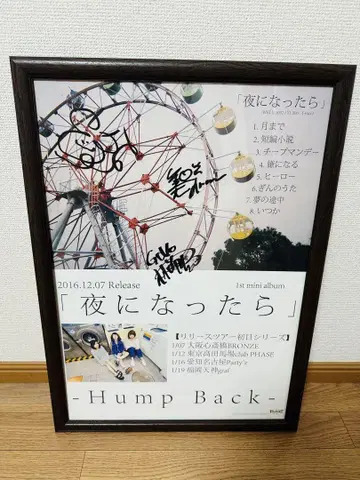 「夜になったら」
1. 月まで
2. 短編小説
3. チープマンデー
4. 懐になる
5. ヒーロー
6. ぎんのうた
7. 夢の途中
8. いつか
2016.12.07 Release
1st mini album
「夜になったら」
【リリースツアー初日シリーズ】
1/12 東京高田馬場club PHASE
1/16 愛知名古屋Party'z
1/19 福岡天神graf
- Hump Back -